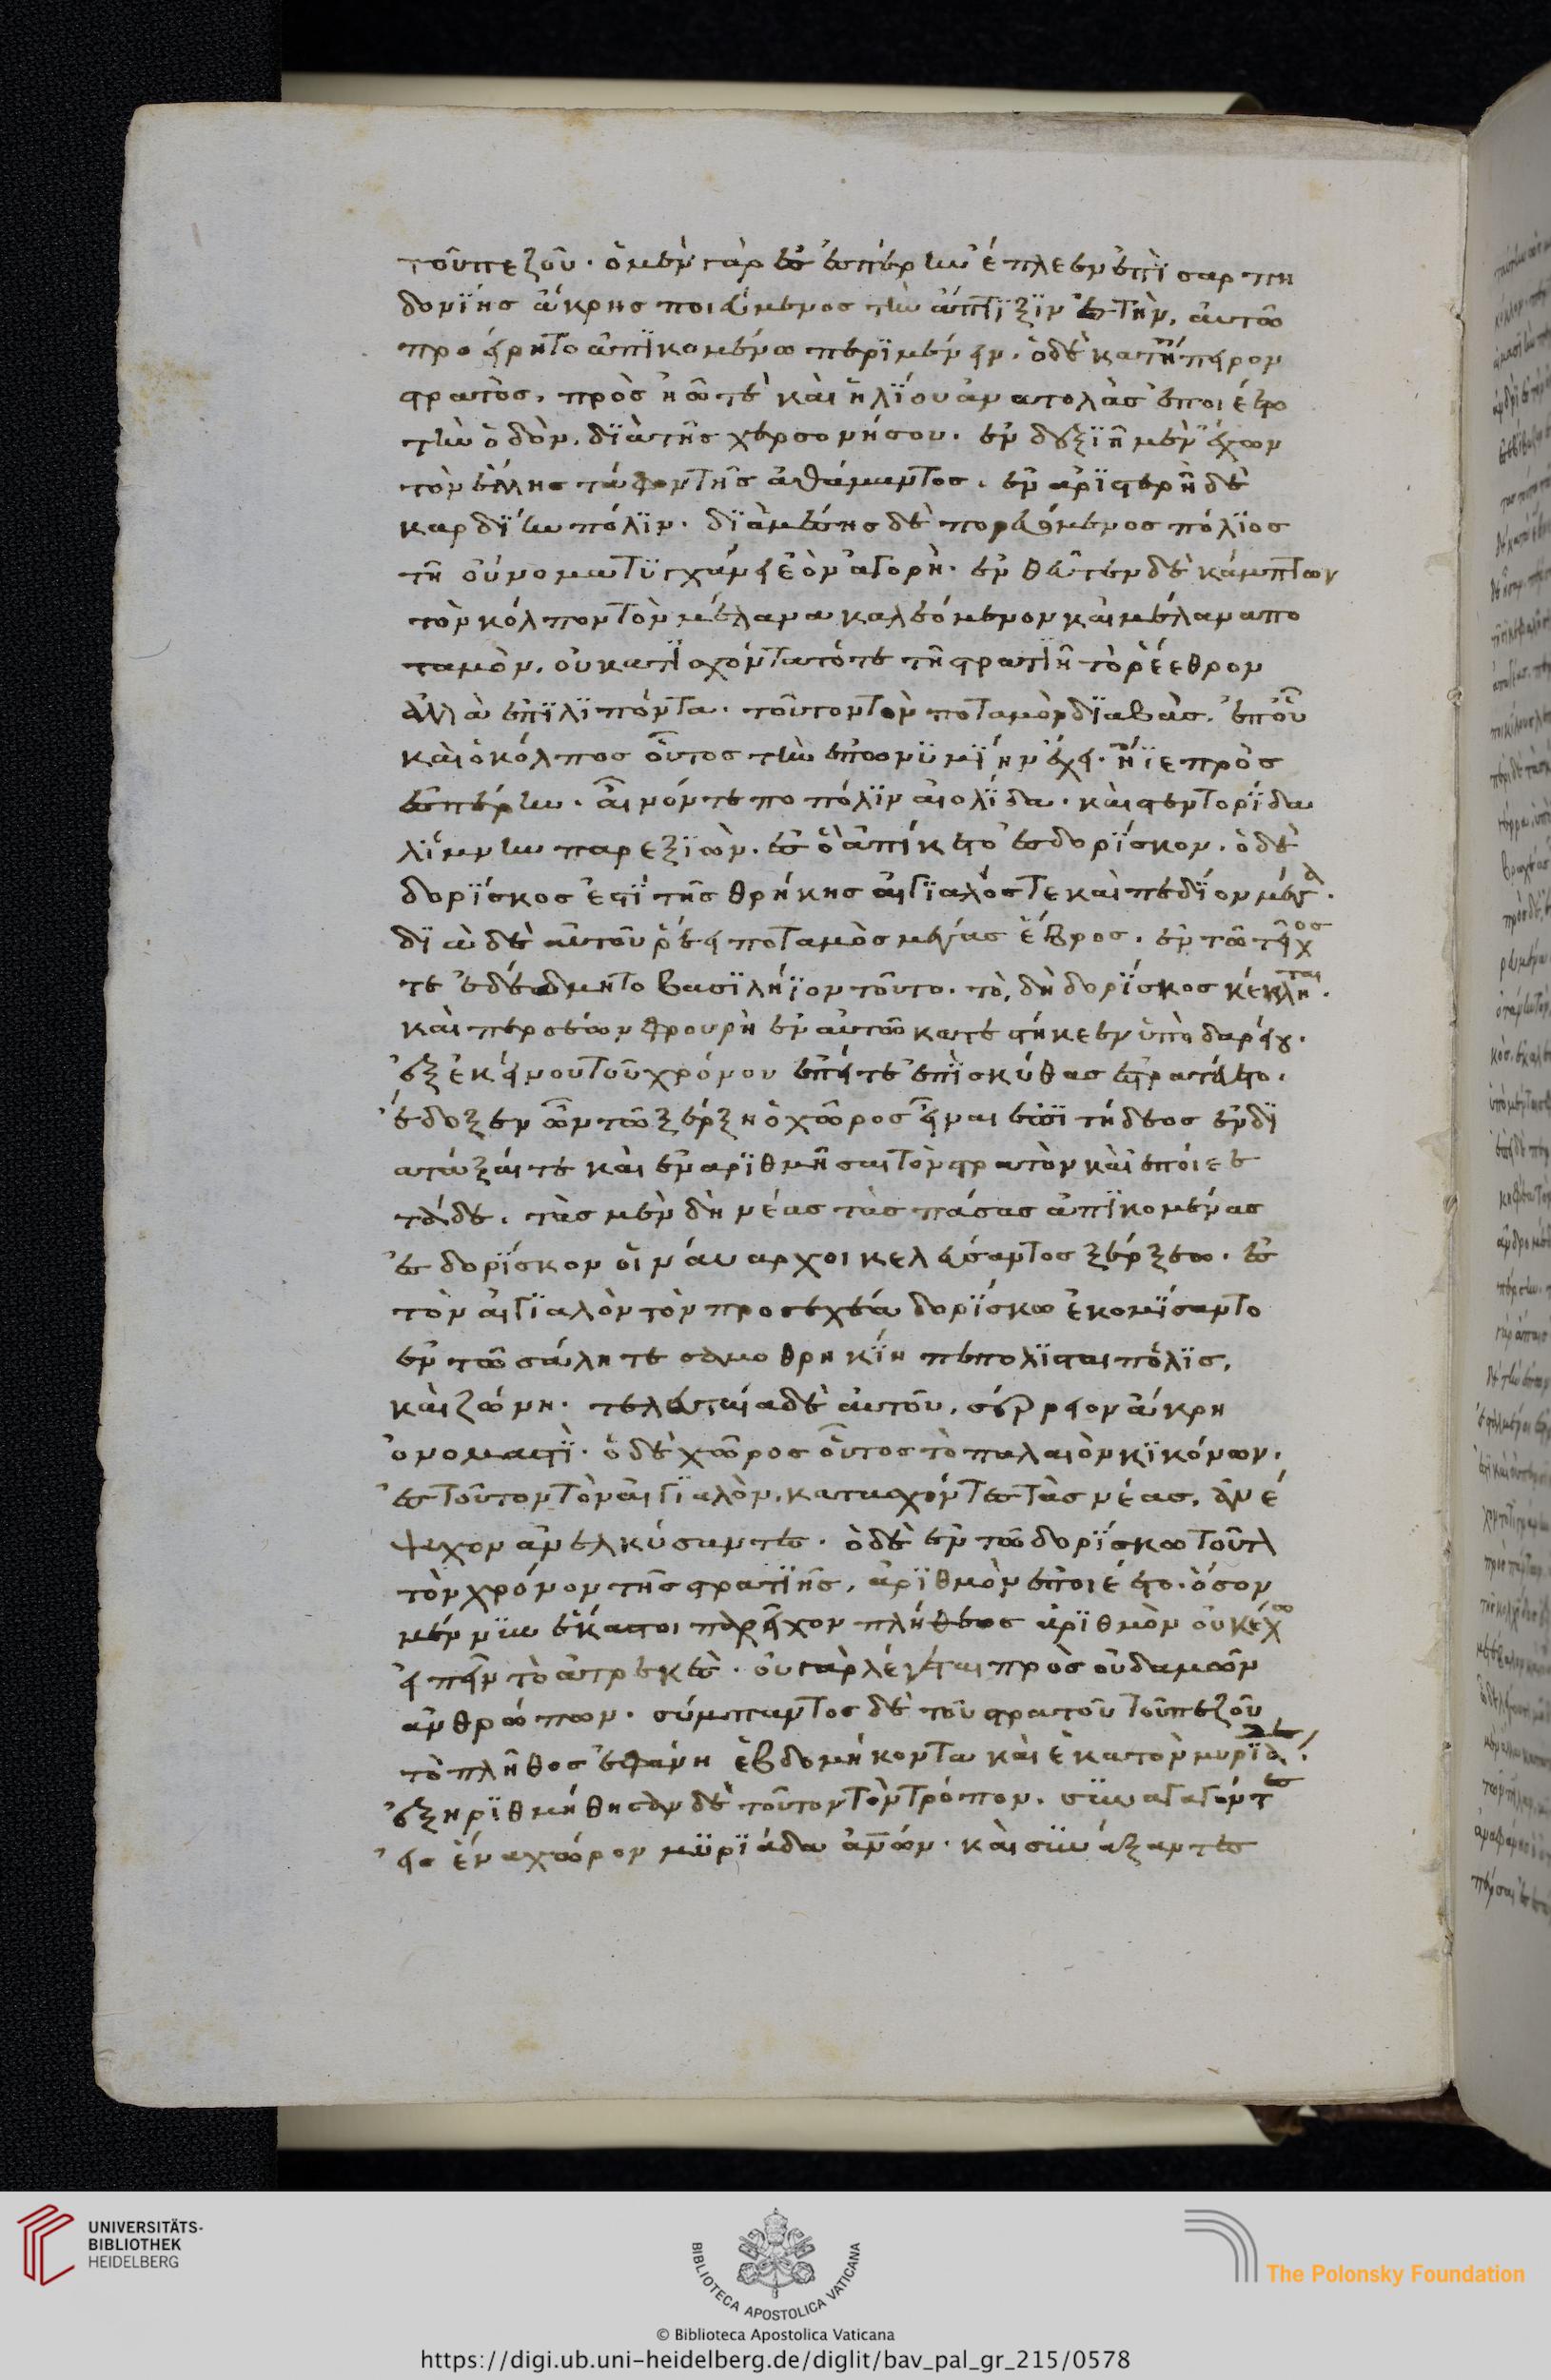 τοῦ πεζοῦ· ὁ μὲν γὰρ ἐς ἑσπέρην ἔπλεεν ἐπὶ σαρπη
δονίης ἄκρης ποιεύμενος τὴν ἄπιξιν ἐς τὴν, αὐτῶ
προείρητο ἀπικομένω περιμένειν· ὁ δὲ κατ' ἤπειρον
στρατὸς, πρὸς ἠῶ τὲ καὶ ἡλίου ἀνατολὰς ἐποιέετο
τὴν ὁδὸν, διὰ τῆς χερσονήσου· ἐν δεξιῆ μὲν ἔχων
τὸν ἕλλης τάφον τῆς ἀθάμαντος, ἐν ἀριστερῆ δὲ
καρδίην πόλιν· διὰ μέσης δὲ πορευόμενος πόλιος
τῆ οὔνομα τυγχάνει ἐὸν ἀγορή· ἐνθεῦτεν δὲ κάμπτων
τὸν κόλπον τὸν μέλανα καλεόμενον καὶ μέλανα πο
ταμὸν, οὐκ ἀντισχόντα τότε τῆ στρατιῆ τὸ ῥέεθρον
ἀλλὰ ἐπιλιπόντα· τοῦτον τὸν ποταμὸν διαβὰς, ἐπ' οὗ
καὶ ὁ κόλπος οὗτος τὴν ἐπωνυμίην ἔχει· ἤϊε πρὸς
ἑσπέρην· αἶνόν τε πο πόλιν αἰολίδα· καὶ στεντορίδα
λίμνην παρεξιὼν· ἐς ὃ ἀπίκετο ἐς δορίσκον· ὁ δὲ
δορίσκος ἐστὶ τῆς θρήκης αἰγιαλός τε καὶ πεδίον μέγα·
διὰ δὲ αὐτοῦ ῥέει ποταμὸς μέγας ἕβρος· ἐν τῶ τεῖχος
τε ἐδέδμητο βασιλήϊον τοῦτο· τὸ, δὴ δορίσκος κέκληται·
καὶ περσέων φρουρὴ ἐν αὐτῶ κατεστήκεεν ὑπὸ δαρείου·
ἐξ ἐκείνου τοῦ χρόνου ἐπείτε ἐπὶ σκύθας ἐστρατεύετο·
ἔδοξεν ὦν τῶ ξέρξη ὁ χῶρος εἶναι ἐπιτήδεος ἐνδι
ατάξαι τε καὶ ἐναριθμῆσαι τὸν στρατὸν καὶ ἐποίεε
τάδε· τὰς μὲν δὴ νέας τὰς πάσας ἀπικομένας
ἐς δορίσκον οἱ ναύαρχοι κελεύσαντος ξέρξεω· ἐς
τὸν αἰγιαλὸν τὸν προσεχέα δορίσκω ἐκομίσαντο
ἐν τῶ σάλη τε σαμοθρηκίη πεπόλισται πόλις,
καὶ ζώνη· τελευταία δὲ αὐτοῦ, σέρρειον ἄκρη
ὀνομαστὴ· ὁ δὲ χῶρος οὗτος τὸ παλαιὸν κικόνων·
ἐς τοῦτον τὸν αἰγιαλὸν, κατασχόντες τὰς νέας, ἀνέ
ψυχον ἀνελκύσαντες· ὁ δὲ ἐν τῶ δορίσκω τοῦτ
τὸν χρόνον τῆς στρατιῆς, ἀριθμὸν ἐποιέετο· ὅσον
μέν νυν ἕκαστοι παρεῖχον πλήθεος ἀριθμὸν οὐκ ἔχω
εἰπεῖν τὸ ἀτρεκὲς· οὐ γὰρ λέγεται πρὸς οὐδαμῶν
ἀνθρώπων· σύμπαντος δὲ τοῦ στρατοῦ τοῦ πεζοῦ
τὸ πλῆθος ἐφάνη ἑβδομήκοντα καὶ ἑκατὸν μυριάδες·
ἐξηρίθμηθησαν δὲ τοῦτον τὸν τρόπον· συναγαγόντες
ἐς ἕνα χῶρον μυριάδα ἀνων· καὶ συνάξαντες
UNIVERSITÄTS-
BIBLIOTHEK
HEIDELBERG
BIBLIOTECA APOSTOLICA VATICANA
The Polonsky Foundation
© Biblioteca Apostolica Vaticana
https://digi.ub.uni-heidelberg.de/diglit/bav_pal_gr_215/0578